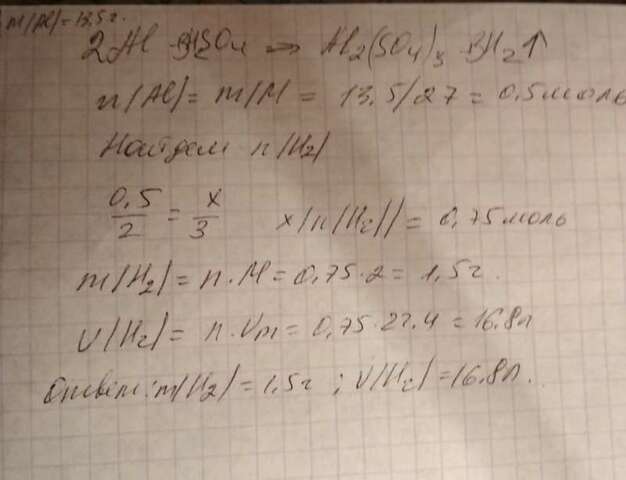 m(Al)=13,5г.
2Al 3H2SO4 => Al2(SO4)3 3H2↑
n(Al)= m/M = 13.5/27 = 0.5моль
Найдем n(H2)
0,5/2 = x/3 x(n(H2))= 0,75моль
m(H2)= n·M=0,75·2= 1,5г.
V(H2)= n·Vm= 0,75·22.4 =16.8л
Ответ: m(H2)=1,5г ; V(H2)=16.8л.